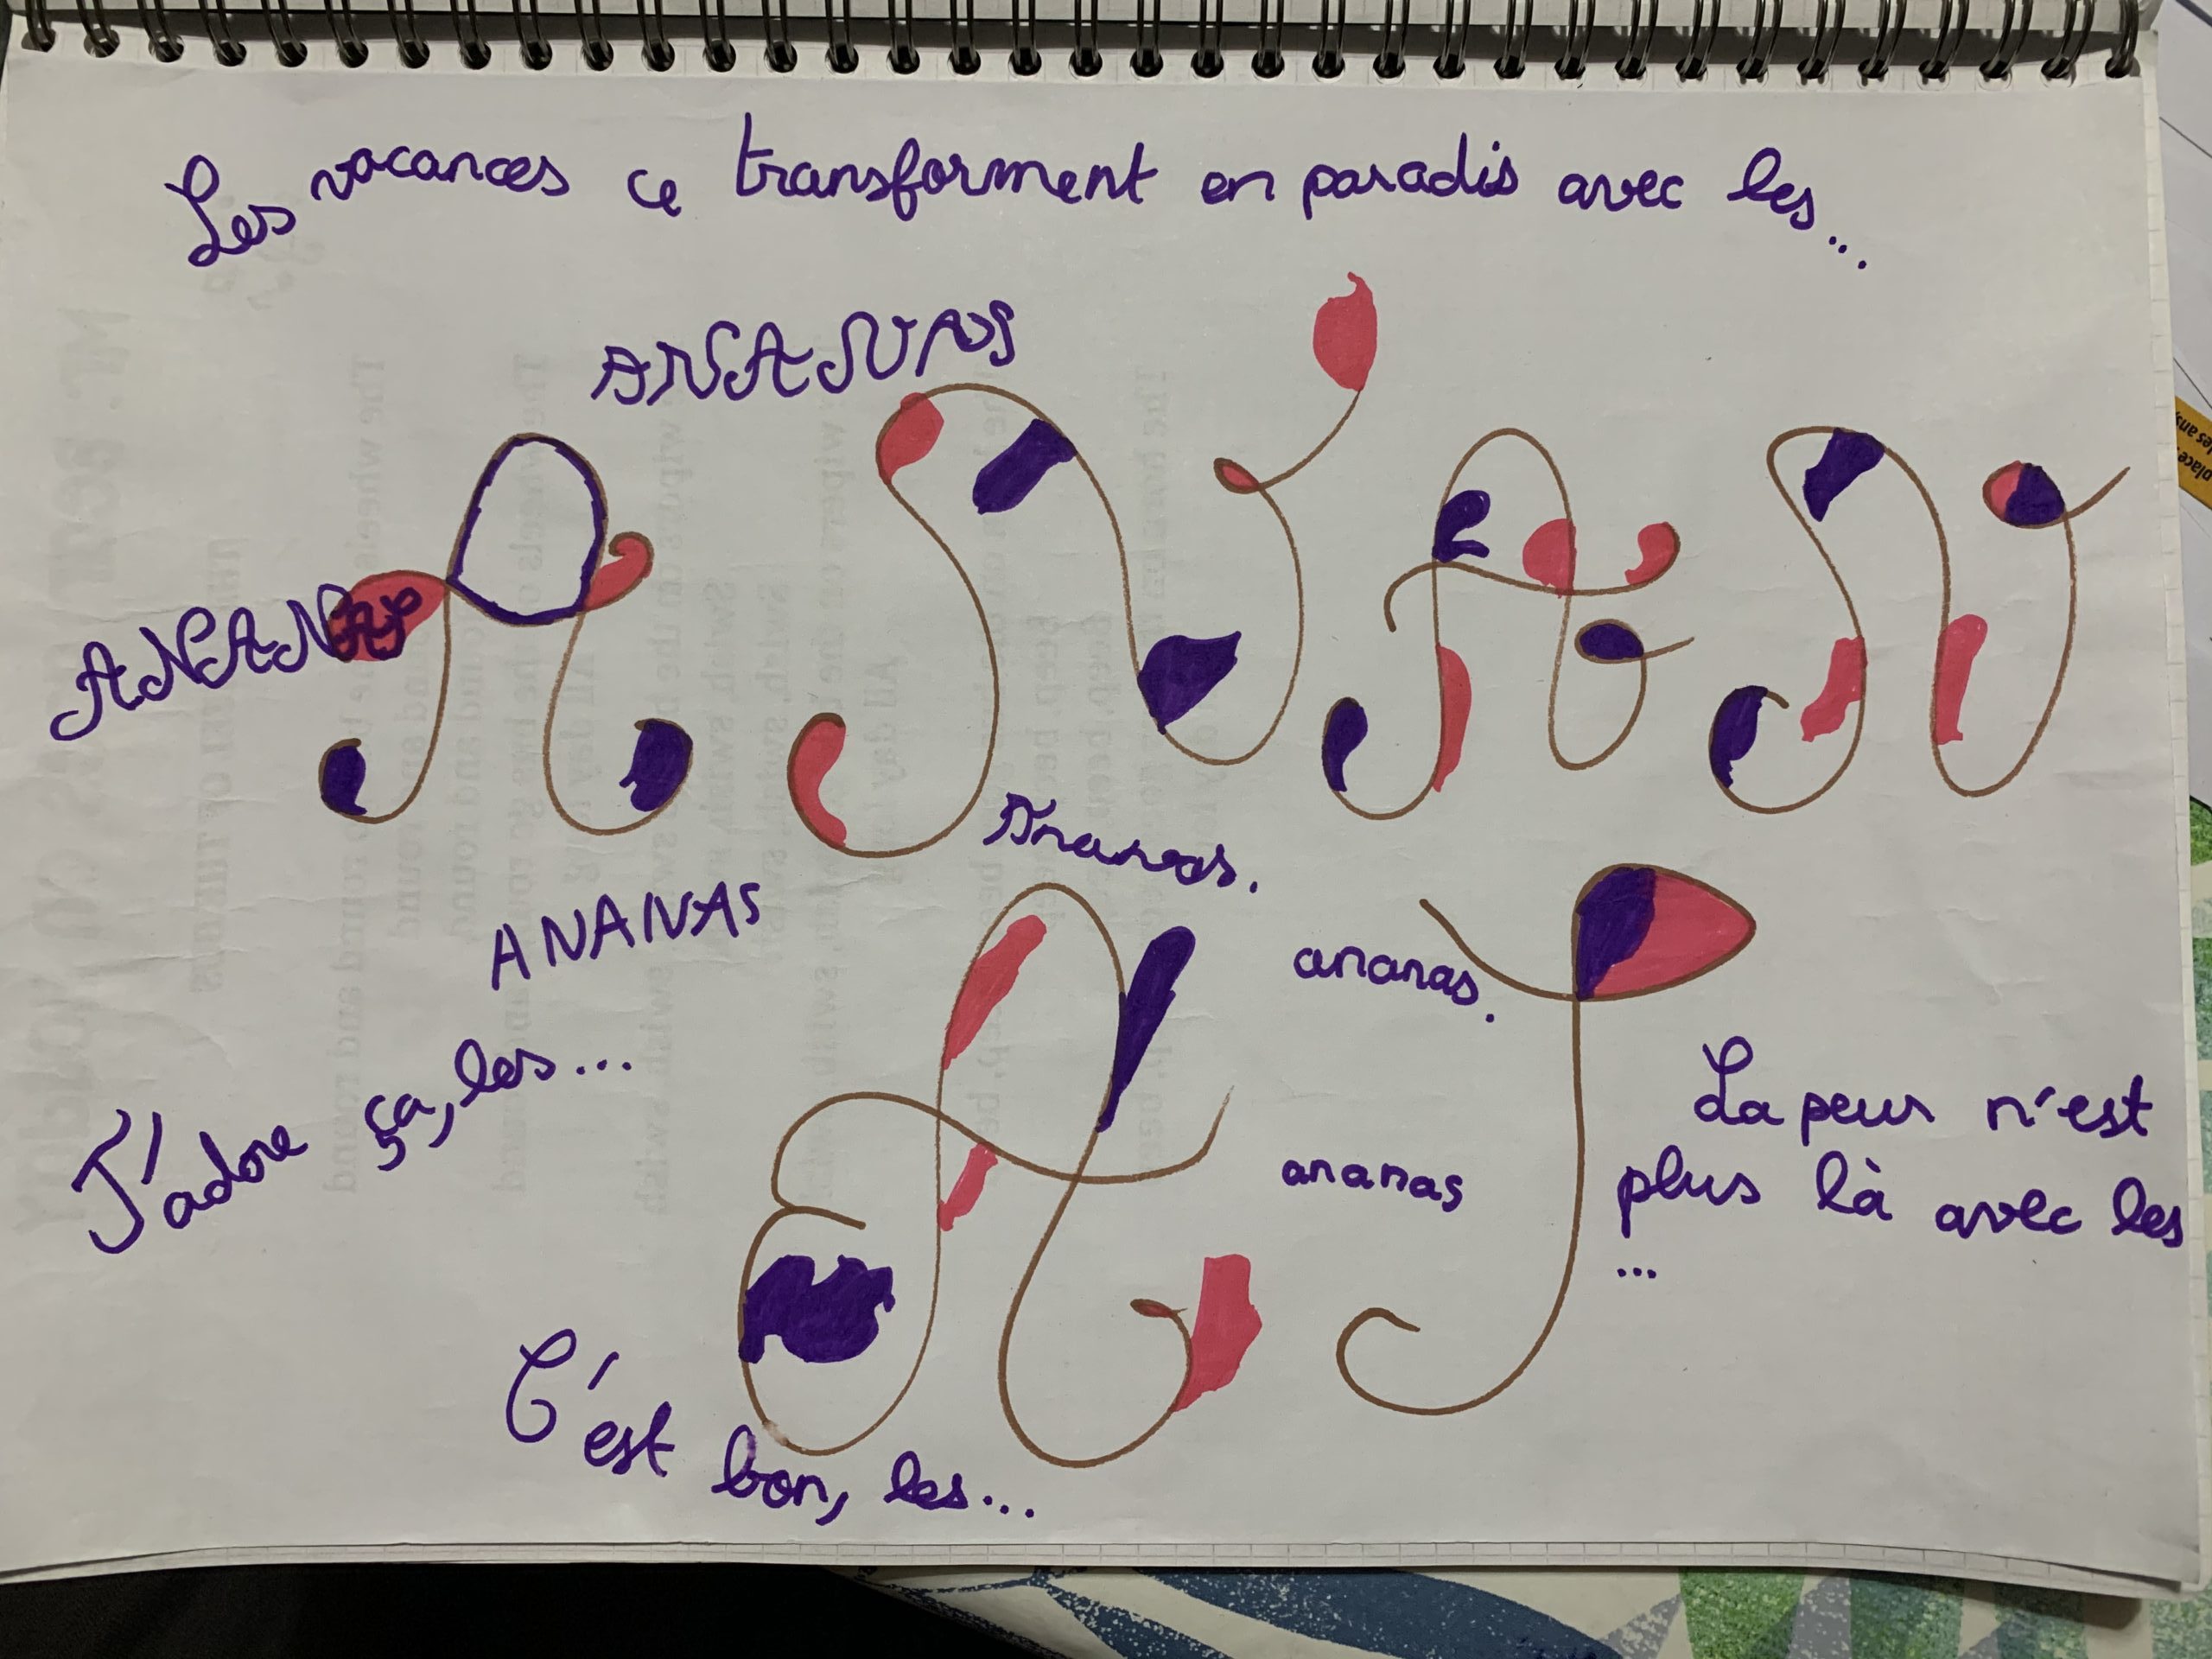 Les vacances ce transforment en paradis avec les...
ANANAS
ANANAS
ANANAS
Ananas.
ANANAS
ananas.
J'adore ça, les...
ananas
La peur n'est
plus là avec les
...
C'est bon, les...